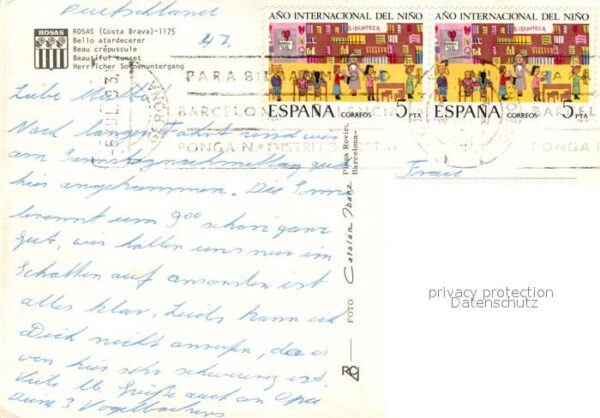 Deutschland
47.
ROSAS
ROSAS (Costa Brava)-1175
Bello atardecerer
Beau crépuscule
Beautiful sunset
Herrlicher Sonnenuntergang
AÑO INTERNACIONAL DEL NIÑO
BIBLIOTECA
ESPAÑA CORREOS 5 PTA
AÑO INTERNACIONAL DEL NIÑO
BIBLIOTECA
ESPAÑA CORREOS 5 PTA
PARA BIEN
BARCELON
PONGA N.º DISTRITO POSTAL
BARCEL
PONGA N
Liebe Mutter!
Nach langer Fahrt sind wir
am Samstagnachmittag gut
hier angekommen. Die Sonne
brennt um 9⁰⁰ schon ganz
gut, wir halten uns nur im
Schatten auf ansonsten ist
alles klar. Leider kann ich
Dich nicht anrufen, da es
von hier sehr schwierig ist.
Viele lb. Grüße auch an Opa
Deine 3 Vogelbachers
Frau
FOTO Catalan Ibarz Plaza Rovir,
Barcelona-
privacy protection
Datenschutz